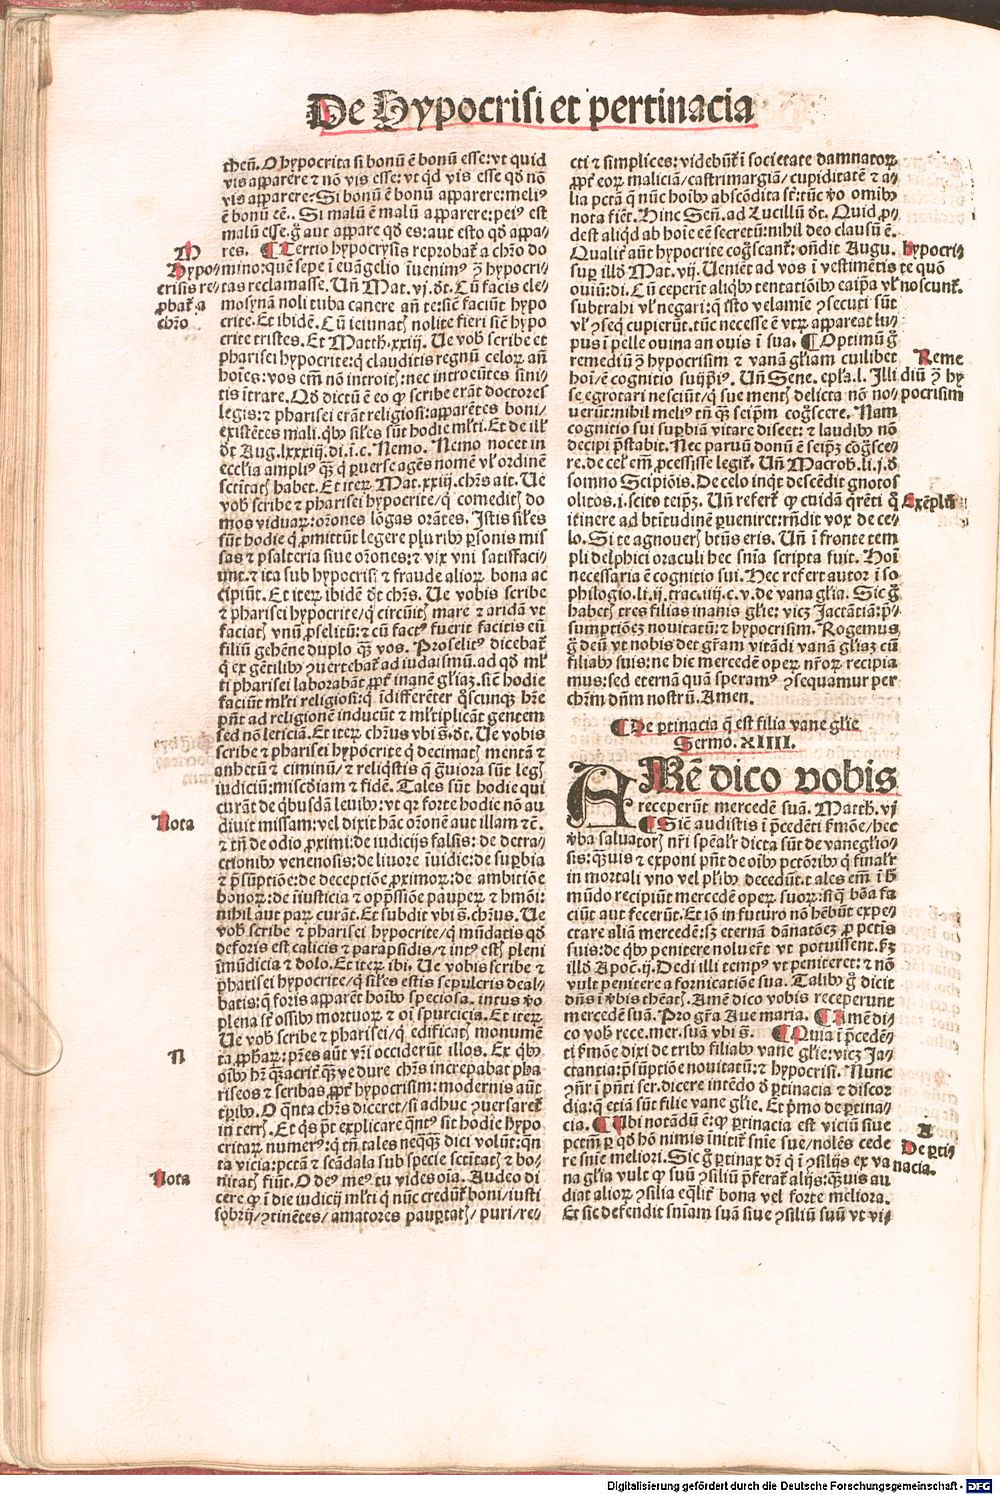 De Hypocrisi et pertinacia
theū. O hypocrita si bonū ē bonū esse: vt quid
vis apparere ⁊ nō vis esse: vt qd vis esse qd nō
vis apparere. Si bonū ē bonū apparere: meliꝰ
ē bonū eē.. Si malū ē malū apparere: peiꝰ est
malū esse. g̊ aut appare qd es: aut esto qd appa⸗
res. ¶ Tertio hypocrysis reprobat̄ a chr̄o do
mino: quē sepe ī euāgelio īuenimꝰ ꝯ̄ hypocri⸗
tas reclamasse. Un̄ Mat. vj. d̄t. Cū facis ele⸗
mosynam noli tuba canere an̄ te: sic̄ faciūt hypo
crite. Et ibidē. Cū ieiunatꝭ nolite fieri sic̄ hypo
crite tristes. Et Matth. xxiij. Ue vob̄ scribe et
pharisei hypocrite: q̇ clauditis regnū celoꝝ an̄
hoīes: vos em̄ nō introitꝭ: nec introeūtes sini⸗
tis ītrare. Qd̄ dictū ē eo ꝙ scribe erāt doctores
legis: ⁊ pharisei erāt religiosi: apparētes boni/
existētes mali. qb̄ꝰ sil̄es sūt hodie ml̄ti. Et de ill̄
d̄t Aug. lxxxiij. di. i. c. Nemo. Nemo nocet in
ecclīa ampliꝰ qꝫ q̇ ꝑuerse agēs nomē vl̄ ordinē
sctītatꝭ habet. Et iteꝝ Mat. xxiij. chr̄s ait. Ue
vob̄ scribe ⁊ pharisei hypocrite/ q̇ comeditꝭ do
mos viduaꝝ: or̄ones lōgas orātes. Istis sil̄es
sūt hodie q̇ ꝓmittūt legere plurib̄ꝰ ꝑsonis mis
sas ⁊ psalteria siue or̄ones: ⁊ vix vni satisfaci⸗
unt. ⁊ ita sub hypocrisi ⁊ fraude alioꝝ bona ac
cipiūt. Et iteꝝ ibidē d̄t chr̄s. Ue vobis scribe
⁊ pharisei hypocrite/ q̇ circuitꝭ mare ⁊ aridā vt
faciatꝭ vnū ꝓselitū: ⁊ cū factꝰ fuerit facitis eū
filiū gehēne duplo qꝫ vos. Proselitꝰ dicebat̄
q̇ ex gētilib̄ꝰ ꝯuertebat̄ ad iudaismū. ad qd̄ ml̄
ti pharisei laborabāt ꝓpt̄ inanē gl̄iaꝫ. sic̄ hodie
faciūt ml̄ti religiosi: q̇ īdifferēter q̊scunqꝫ hr̄e
pn̄t ad religionē inducūt ⁊ ml̄tiplicāt gentem
sed nō leticiā. Et iteꝝ chr̄us vbi s̄. d̄t. Ue vobis
scribe ⁊ pharisei hypocrite q̇ decimatꝭ mentā ⁊
anhetū ⁊ ciminū/ ⁊ reliqstis q̄ g̊uiora sūt legꝭ
iudiciū: misc̄diam ⁊ fidē. Tales sūt hodie qui
curāt de qb̄usdā leuib̄ꝰ: vt qꝛ forte hodie nō au
diuit missam: vel dixit hāc or̄onē aut illam ⁊c̄.
⁊ tn̄ de odio ꝓximi: de iudicijs falsis: de detra⸗
ctionib̄ꝰ venenosis: de liuore īuidie: de suꝑbia
⁊ p̄sūptiōe: de deceptiōe ꝓximoꝝ: de ambitiōe
honoꝝ: de iniusticia ⁊ opp̄ssiōe pauꝑꝝ ⁊ hm̄oi:
nihil aut paꝝ curāt. Et subdit vbi s̄. chr̄us. Ue
vob̄ scribe ⁊ pharisei hypocrite/ q̇ mūdatis qd̄
deforis est calicis ⁊ parapsidis/ ⁊ intꝰ estꝭ pleni
īmūdicia ⁊ dolo. Et iteꝝ ibi. Ue vobis scribe ⁊
pharisei hypocrite/ q̇ sil̄es estis sepulcris deal⸗
batis: q̄ foris apparēt hoīb̄ꝰ speciosa. intus v̄o
plena st̄ ossib̄ꝰ mortuoꝝ ⁊ oī spurcicia. Et iteꝝ
Ue vob̄ scribe ⁊ pharisei/ q̇ edificatꝭ monumē
ta ꝓphaꝝ: pr̄es aūt vr̄i occiderūt illos. Ex qb̄ꝰ
oīb̄ꝰ hr̄ qꝫacrit̄ qꝫve dure chr̄s increpabat pha
riseos ⁊ scribas ꝓpt̄ hypocrisim: modernis aūt
tꝑib̄ꝰ. O q̄nta chr̄s diceret/ si adhuc ꝯuersaret̄
in terrꝭ. Et qs pōt explicare qn̄tꝰ sit hodie hypo
critaꝝ numerꝰ: q̇ tn̄ tales neqꝫqꝫ dici volūt: qn̄
ta vicia: pctā ⁊ scādala sub specie sctītatꝭ ⁊ bo⸗
nitatꝭ fiūt. O deꝰ meꝰ tu vides oīa. Audeo di
cere ꝙ ī die iudicij ml̄ti q̇ nūc credūt̄ boni/ iusti
sobrij/ ꝯtinētes/ amatores pauꝑtatꝭ/ puri/ re⸗
M
Hypo⸗
crisis re⸗
probat̄ a
chr̄o
Nota
N
Nota
cti ⁊ simplices: videbūt̄ ī societate damnatoꝝ
ꝓpt̄ eoꝝ maliciā/ castrimargiā/ cupiditatē ⁊ a⸗
lia pctā q̄ nūc hoīb̄ꝰ abscōdita st̄: tūc v̄o omīb̄ꝰ
nota fiēt. Hinc Sen̄. ad Lucillū d̄t. Quid ꝓ⸗
dest aliqd ab hoīe eē secretū: nihil deo clausū ē.
Qualit̄ aūt hypocrite cog̊scant̄: on̄dit Augu.
suꝑ illd̄ Mat. vij. Ueniēt ad vos ī vestimētis
ouiū: di. Cū ceperīt aliqb̄ꝰ tentatiōib̄ꝰ ea ip̄a vl̄
subtrahi vl̄ negari: q̄ isto velamīe ꝯsecuti sūt
vl̄ ꝯseq̇ cupierūt. tūc necesse ē vtꝝ appareat lu⸗
pus ī pelle ouina an ouis ī sua. ¶ Optimū g̊
remediū ꝯ̄ hypocrisim ⁊ vanā gl̄iam cuilibet
hoī/ ē cognitio suijp̄iꝰ. Un̄ Sene. epl̄a. l. Illi
se egrotari nesciūt/ q̇ sue mentꝭ delicta nō no⸗
uerūt: nihil meliꝰ tn̄ qꝫ seip̄m cog̊scere. Nam
cognitio sui suꝑbiā vitare discet: ⁊ laudib̄ꝰ nō
decipi p̄stabit. Nec paruū donū ē seip̄ꝫ cog̊sce⸗
re. de cel̄ em̄ ꝓcessisse legit̄. Un̄ Macrob̄. li. j. d̄
somno Scipiōis. De celo inq̇t descēdit gnotos
olitos. i. scito teip̄ꝫ. Un̄ refert̄ ꝙ cuidā q̄rēti q̊
itinere ad btītudinē ꝑueniret: rn̄dit vox de ce⸗
lo. Si te agnouerꝭ bt̄us eris. Un̄ ī fronte tem
pli delphici oraculi hec sn̄ia scripta fuit. Hoī
necessaria ē cognitio sui. Hec refert autor ī so
philogio. li. ij. trac. iiij. c. v. de vana gl̄ia. Sic g̊
habetꝭ tres filias inanis gl̄ie: vicꝫ Jactātiā: p̄⸗
sumptiōeꝫ nouitatū: ⁊ hypocrisim. Rogemus
g̊ deū vt nobis det gr̄am vitādi vanā gl̄iaꝫ cū
filiab̄ꝰ suis: ne hic mercedē opeꝝ nr̄oꝝ recipia
mus: sed eternā quā speramꝰ ꝯsequamur per
chr̄m dn̄m nostrū. Amen.
¶ De ꝑtinacia q̄ est filia vane gl̄ie
Sermo. XLIII.
AMē dico vobis
receperūt mercedē suā. Matth. vj
¶ Sic̄ audistis ī p̄cedēti ẜmōe/ hec
v̄ba saluatorꝭ nr̄i spēalr̄ dicta sūt de vaneglio⸗
sis: qꝫuis ⁊ exponi pn̄t de oīb̄ꝰ pctōrib̄ꝰ q̇ finalr̄
in mortali vno vel pl̄ib̄ꝰ decedūt. tales em̄ ī h̄
mūdo recipiūt mercedē opeꝝ suoꝝ: si q̄ bōa fa
ciūt aut fecerūt. Et iō in futuro nō hēbūt expe⸗
ctare aliā mercedē: sꝫ eternā dānatōeꝫ ꝓ pctīs
suis: de qb̄ꝰ penitere noluer̄t vt potuissent. ẜꝫ
illd̄ Apoc̄. ij. Dedi illi tempꝰ vt peniteret: ⁊ nō
vult penitere a fornicatiōe sua. Talib̄ꝰ g̊ dicit
dn̄s ī v̄bis theatꝭ. Amē dico vobis receperunt
mercedē suā. Pro gr̄a Aue maria. ¶ Amē di⸗
co vob̄ rece. mer. suā vbi s̄. ¶ Quia ī p̄cedē⸗
ti ẜmōe dixi de trib̄ꝰ filiab̄ꝰ vane gl̄ie: vicꝫ Ja⸗
ctantia: p̄sūptiōe nouitatū: ⁊ hypocrisi. Nunc
ꝯn̄r ī pn̄ti ser. dicere intēdo d̄ ꝑtinacia ⁊ discor
dia: q̄ etiā sūt filie vane gl̄ie. Et p̄mo de ꝑtina⸗
cia. ¶ Ubi notādū ē: ꝙ ꝑtinacia est viciū siue
pctm̄ ꝑ qd̄ hō nimis initit̄ sn̄ie sue/ nolēs cede
re sn̄ie meliori. Sic g̊ ꝑtinax dr̄ q̇ ī ꝯsilijs ex va
na gl̄ia vult ꝙ suū ꝯsiliū p̄ferat̄ alijs: qꝫuis au
diat alioꝝ ꝯsilia eq̄lit̄ bona vel forte meliora.
Et sic defendit sn̄iam suā siue ꝯsiliū suū vt vi⸗
Hypocri⸗
te quō
noscunt̄.
Reme
diū ꝯ̄ hy
pocrisim
Exēplū
A
De ꝑti⸗
nacia.
Digitalisierung gefördert durch die Deutsche Forschungsgemeinschaft - DFG